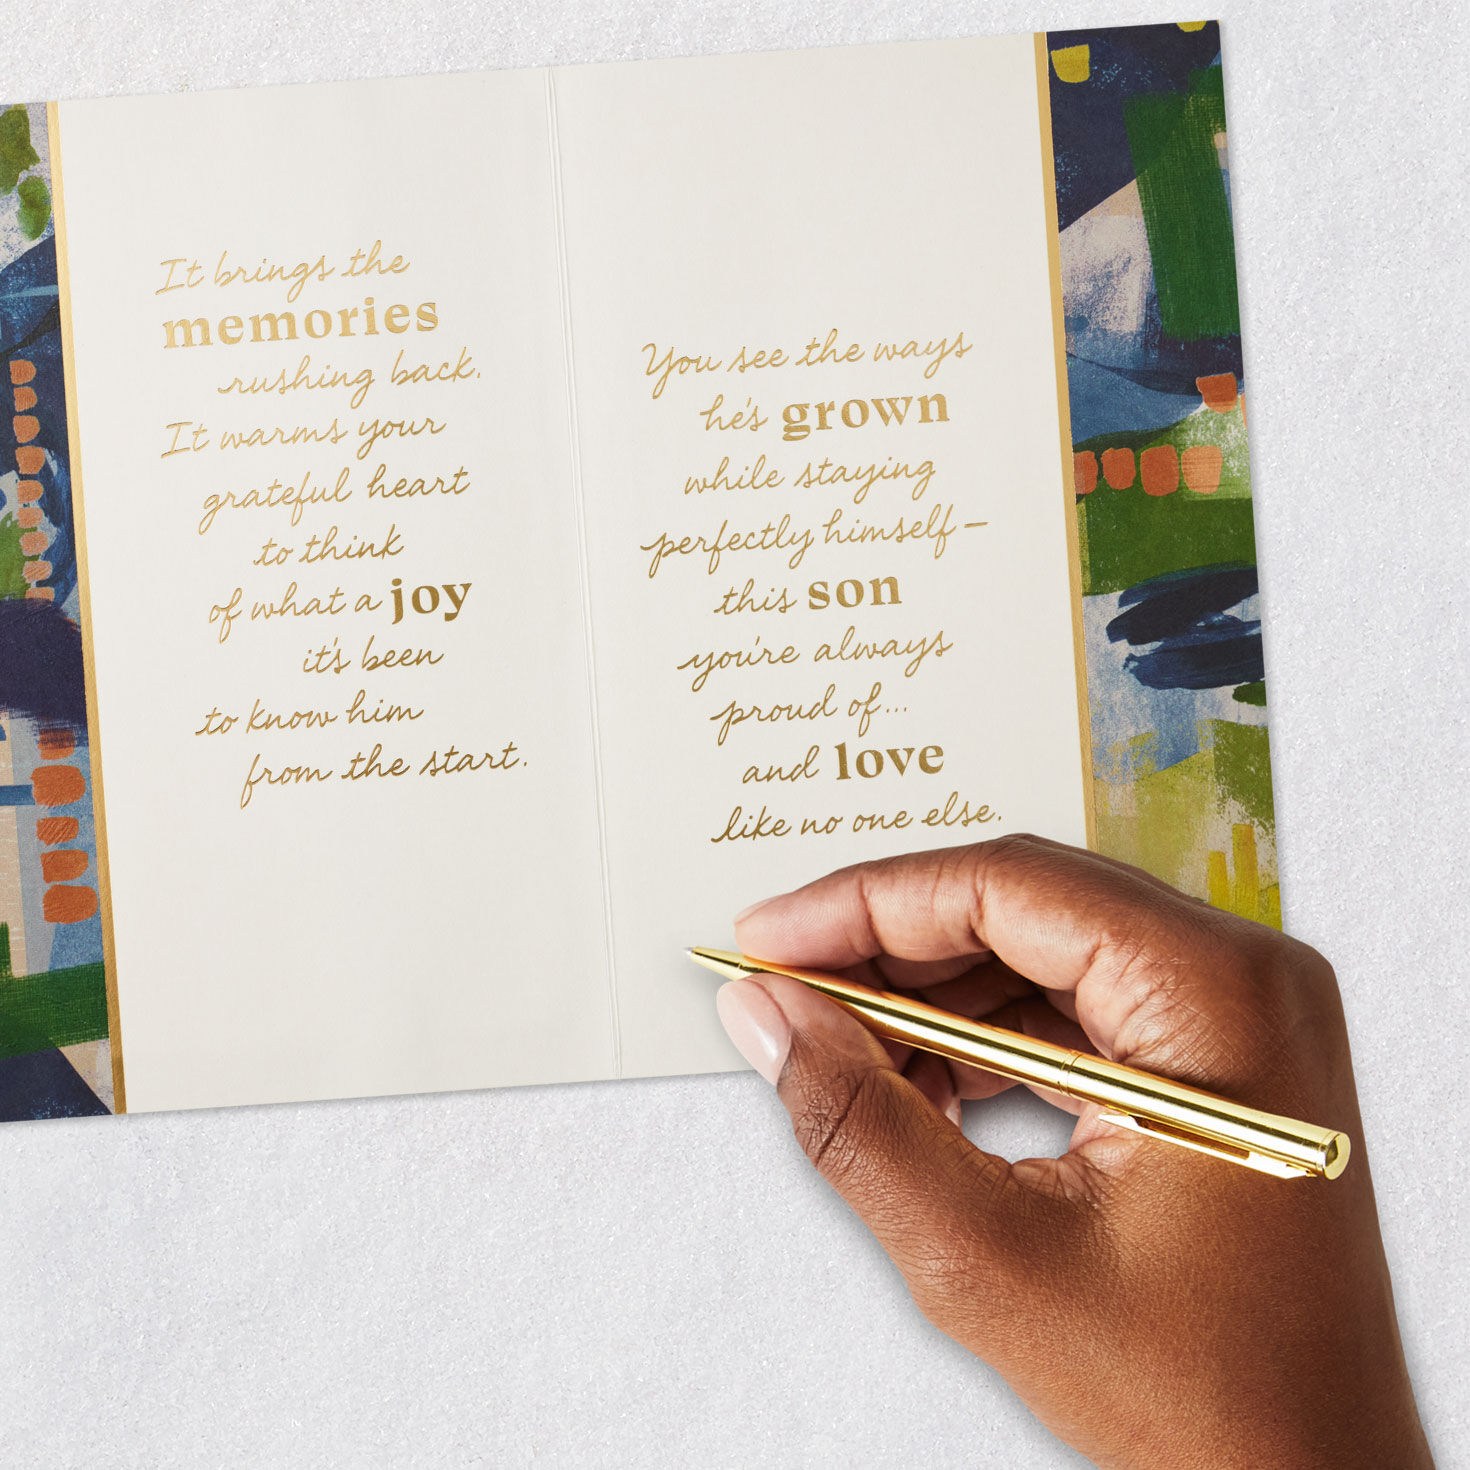 It brings the
memories
rushing back.
It warms your
grateful heart
to think
of what a joy
it's been
to know him
from the start.
You see the ways
he's grown
while staying
perfectly himself—
this son
you're always
proud of...
and love
like no one else.